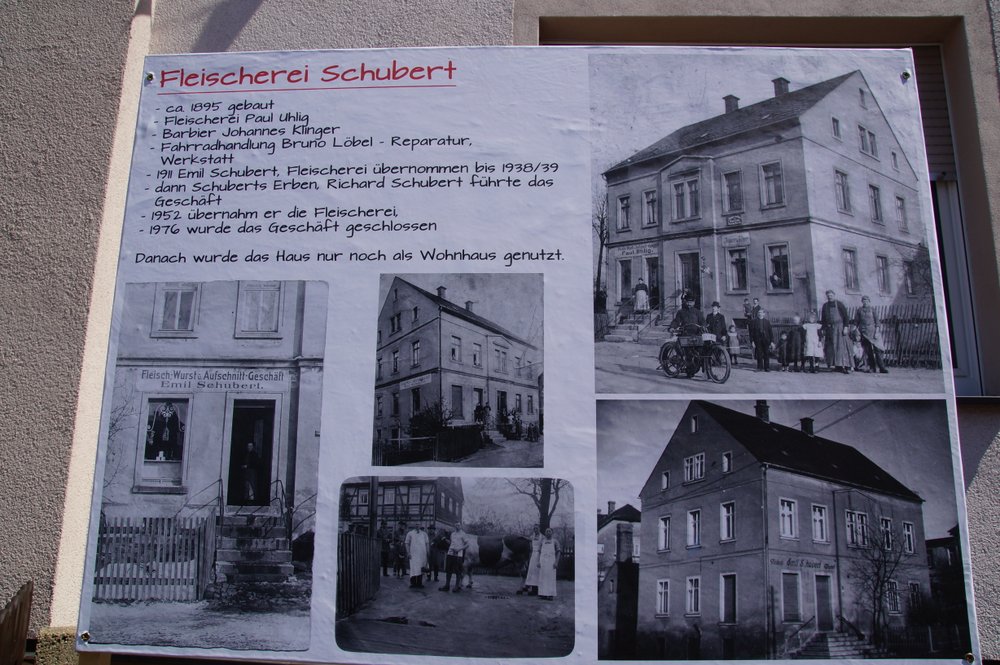 Fleischerei Schubert
- ca. 1895 gebaut
- Fleischerei Paul Uhlig
- Barbier Johannes Klinger
- Fahrradhandlung Bruno Löbel - Reparatur,
Werkstatt
- 1911 Emil Schubert, Fleischerei übernommen bis 1938/39
- dann Schuberts Erben, Richard Schubert führte das
Geschäft
- 1952 übernahm er die Fleischerei,
- 1976 wurde das Geschäft geschlossen
Danach wurde das Haus nur noch als Wohnhaus genutzt.
Fleisch-, Wurst- u. Aufschnitt-Geschäft
Emil Schubert.
Paul Uhlig.
Emil Schubert